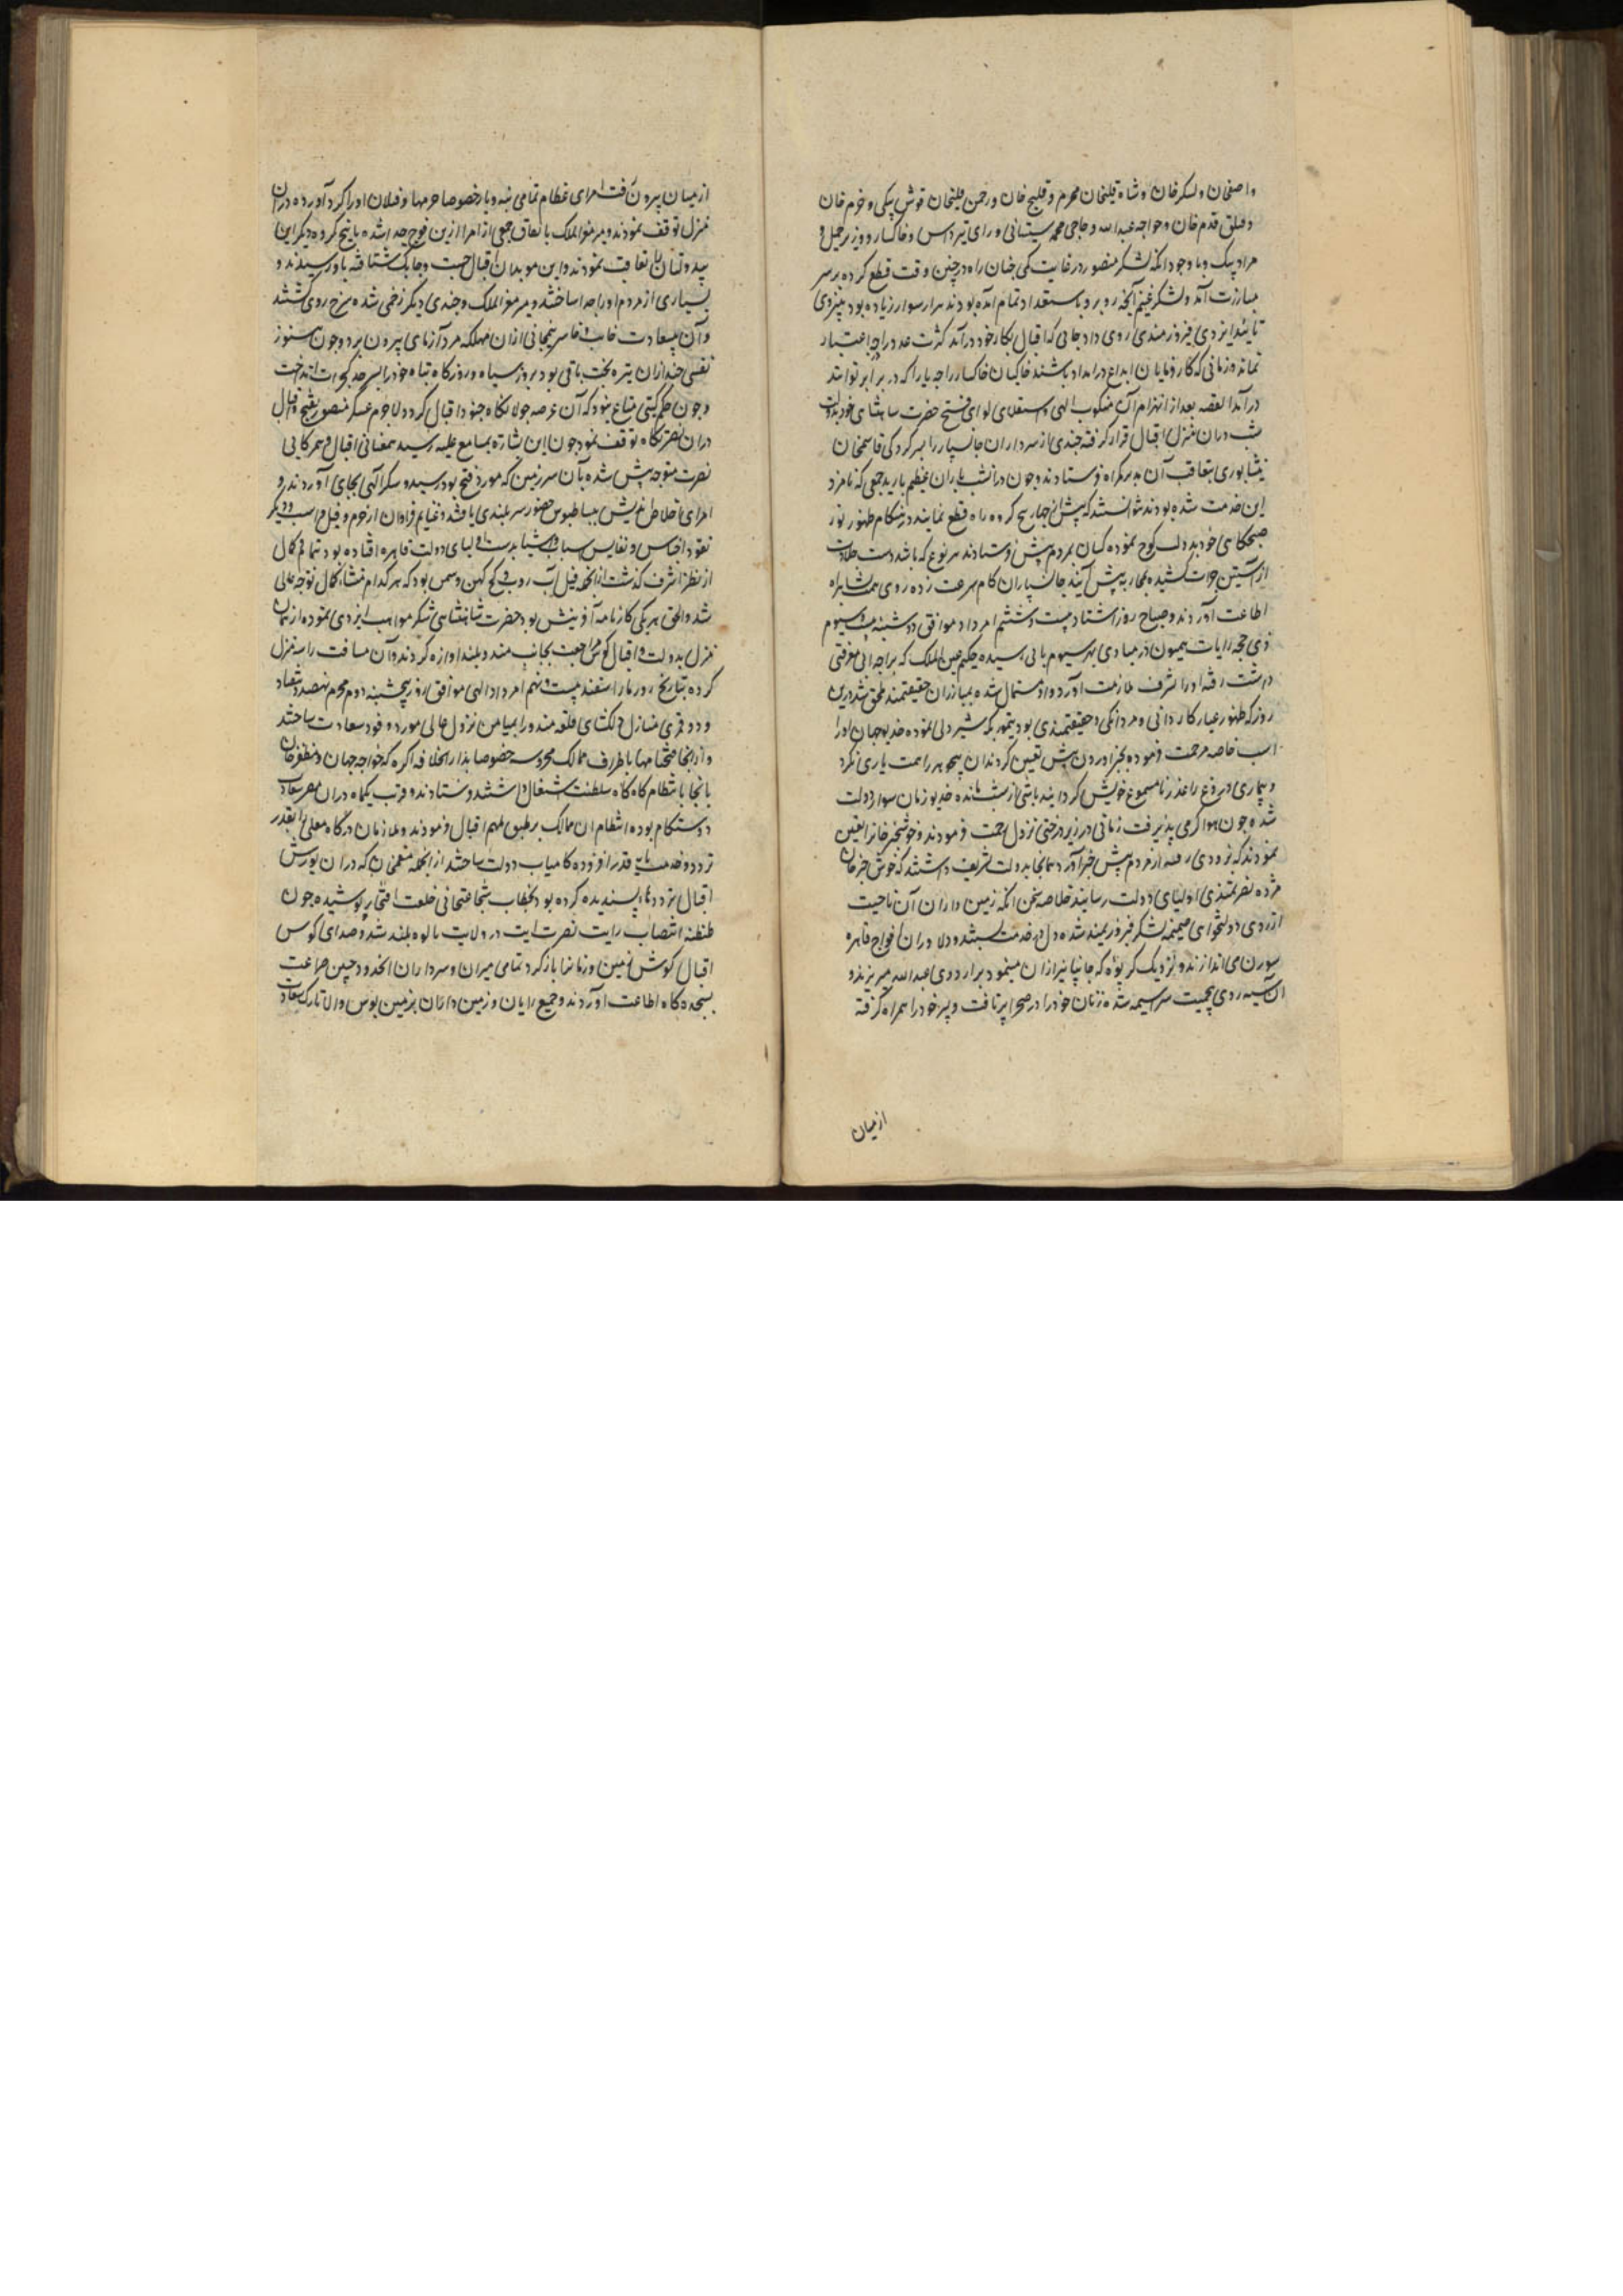 و اصفخان و لسکرخان و شاه قلیخان محرم و قلیج خان و رحمن قلیخان قوش بیکی و خرم خان
و قتلق قدم خان و خواجه عبدالله و حاجی محمد سیستانی و رای تپرداس و خاکسار و وزیر جمیل و
مراد بیک و با وجود آنکه لشکر منصور در غایت کمی چنان راه در چنین وقت قطع کرده بر سر
مبارزت آمد و لشکر غنیم آنچه روبرو باستعداد تمام آمده بودند هزار سوار زیاده بود
تائید ایزدی فیروزمندی روی داد جائی که اقبال بکار خود درآمد کثرت عدد را چه اعتبار
نماند و زمانی که کارفرمایان ابداع در امداد باشند خاکیان خاکسار را چه یارا که در برابر توانند
درآمد القصه بعد از انهزام آن منکوب الهی و استعلای لوای فتح حضرت شاهنشاهی خود بدولت
شب در آن منزل اقبال قرار گرفته چندی از سرداران جانسپار را بسرکردگی قاسمخان
نیشابوری بتعاقب آن بدسگراه فرستادند و چون در آنشب باران عظیم بارید جمعی که نامزد
این خدمت شده بودند نتوانستند که پیش از چهار پنج کروه راه قطع نمایند در هنگام ظهور نور
صبحگاهی خود بدولت کوچ نموده کسان بمردم پیش فرستادند هر نوع که باشد دست جلادت
از آستین جرات کشیده بمحاربه پیش آیند جانسپاران کام سرعت زده روی همت بشاهراه
اطاعت آوردند و صباح روز اشتاد بیست و ششم امرداد موافق دوشنبه بیست و سیوم
ذی حجه رایات همیون در مبادی پهر سیوم بانی رسیده حکیم عین الملک که براجه انی معرفتی
داشت رفته او را بشرف ملازمت آورد و او مستمال شده بمبارزان حقیقتمند ملحق شد درین
روز که ظهور عیار کاردانی و مردانگی و حقیقتمندی بود تیمور یکه شیردلی نموده خدیو جهان او را
اسب خاصه مرحمت فرموده بخبر آوردن پیش تعین کردند آن بیجوهر را همت یاری نکرد
و بیماری دروغ را عذر نامسموع خویش گردانید پاشی از شب مانده خدیو زمان سوار دولت
شده چون هوا گرمی پذیرفت زمانی در زیر درختی نزول رحمت فرمودند و خوشخبر خان را تعین
نمودند که بزودی رفته از مردم پیش خبر آورد همانجا بدولت تشریف داشتند که خوش خبرخان
مژده نصرتمندی اولیای دولت رسانید خلاصه سخن آنکه زمین داران آن ناحیت
از روی دولتخواهی ضمیمه لشکر فیروزیمند شده دل در خدمت بستند و دلاوران افواج قاهره
سورن می اندازند و نزدیک کریوه که جانپانیر از آن مینمود بر اردوی عبدالله میریزند و
آن سیه روی بیحمیت سراسیمه شده زنان خود را در صحرا برتافت و پسر خود را همراه گرفته
از میان
از میان بیرون رفت امرای عظام تمامی بنه و بار خصوصا حرمها و فیلان او را گرد آورده در آن
منزل توقف نمودند و میر معزالملک باتفاق جمعی از امرا ازین فوج جدا شده تا پنج کروه دیگر این
بیدولتان را تعاقب نمودند و این مویدان اقبال چست و چابک شتافته باو رسیدند و
بسیاری از مردم او را جدا ساختند و میر معزالملک و چندی دیگر زخمی شده سرخ روی گشتند
و آن بیسعادت خایب و خاسر بنیمجانی از آن مهلکه مردآزمای بیرون برد و چون هنوز
نفسی چند از آن تیره بخت باقی بود بروز سیاه و روزگار تباه خود را بسرحد گجرات انداخت
و چون حکم گیتی مطاع نبود که آن عرصه جولانگاه جنود اقبال گردد لاجرم عسکر منصور بفتح و اقبال
در آن نصرتگاه توقف نمود چون این بشارت بمسامع علیه رسید همعنانی اقبال و همرکابی
نصرت متوجه پیش شده بآن سرزمین که مورد فتح بود رسیده شکر الهی بجای آوردند و
امرای اخلاص اندیش ببساطبوس حضور سربلندی یافتند و غنایم فراوان از حرم و فیل و اسب و دیگر
نقود و اجناس و نفایس اسباب و اشیا بدست اولیای دولت قاهره افتاده بود تمام و کمال
از نظر اشرف گذشت از آنجمله فیل آب روپ و گج کهن و سمن بود که هر کدام منشاء کمال توجه عالی
شد و الحق هر یکی کارنامه آفرینش بود حضرت شاهنشاهی شکر مواهب ایزدی نموده از آن
منزل بدولت و اقبال کوس مراجعت بجانب مندو بلند آوازه گردند و آن مسافت را بسه منزل
کرده بتاریخ روز مار اسفند بیست و نهم امرداد الهی موافق روز پنجشنبه دوم محرم نهصد و هفتاد
و دو قمری منازل دلکشای قلعه مندو را بمیامن نزول عالی مورد وفود سعادت ساختند
و از آنجا فتحنامها باطراف ممالک محروسه خصوصا بدارالخلافه اگره که خواجه جهان و مظفرخان
بانجا بانتظام کارگاه سلطنت اشتغال داشتند فرستادند و قریب یکماه در آن مصر سعادت
دوستکام بوده انتظام آن ممالک بر طبق ملهم اقبال فرمودند و ملازمان درگاه معلی را بقدر
تردد و خدمت پایه قدر افزوده کامیاب دولت ساختند از آنجمله مقیمخان که در آن یورش
اقبال ترددهای پسندیده کرده بود بخطاب شجاعتخانی خلعت افتخار پوشیده چون
طنطنه انتصاب رایت نصرت آیت در ولایت مالوه بلند شد و صدای کوس
اقبال گوش زمین و زمان را باز کرد تمامی میران و سرداران آنحدود جبین ضراعت
بسجده گاه اطاعت آوردند و جمیع رایان و زمین داران بزمین بوس والا تارک سعادت